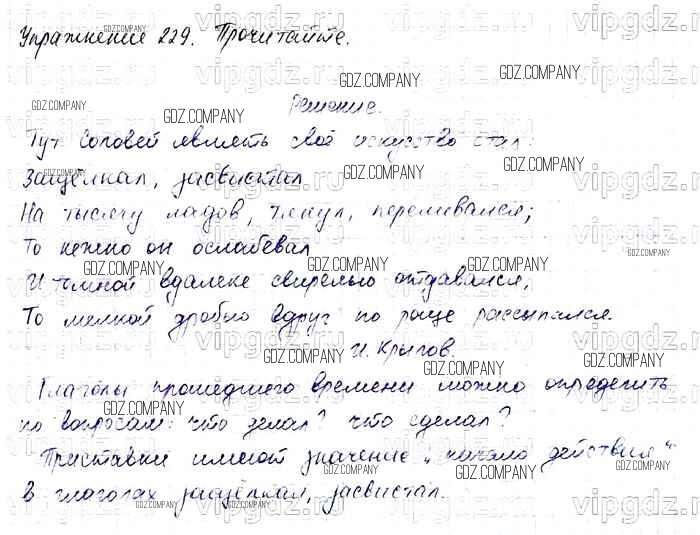 Упражнение 229. Прочитайте.
Решение.
Тут Соловей являть своё искусство стал:
Защёлкал, засвистал
На тысячу ладов, тянул, переливался;
То нежно он ослабевал
И томной вдалеке свирелью отдавался,
То мелкой дробью вдруг по роще рассыпался.
И. Крылов.
Глаголы прошедшего времени можно определить
по вопросам: что делал? что сделал?
Приставки имеют значение „начало действия“
в глаголах защёлкал, засвистал.